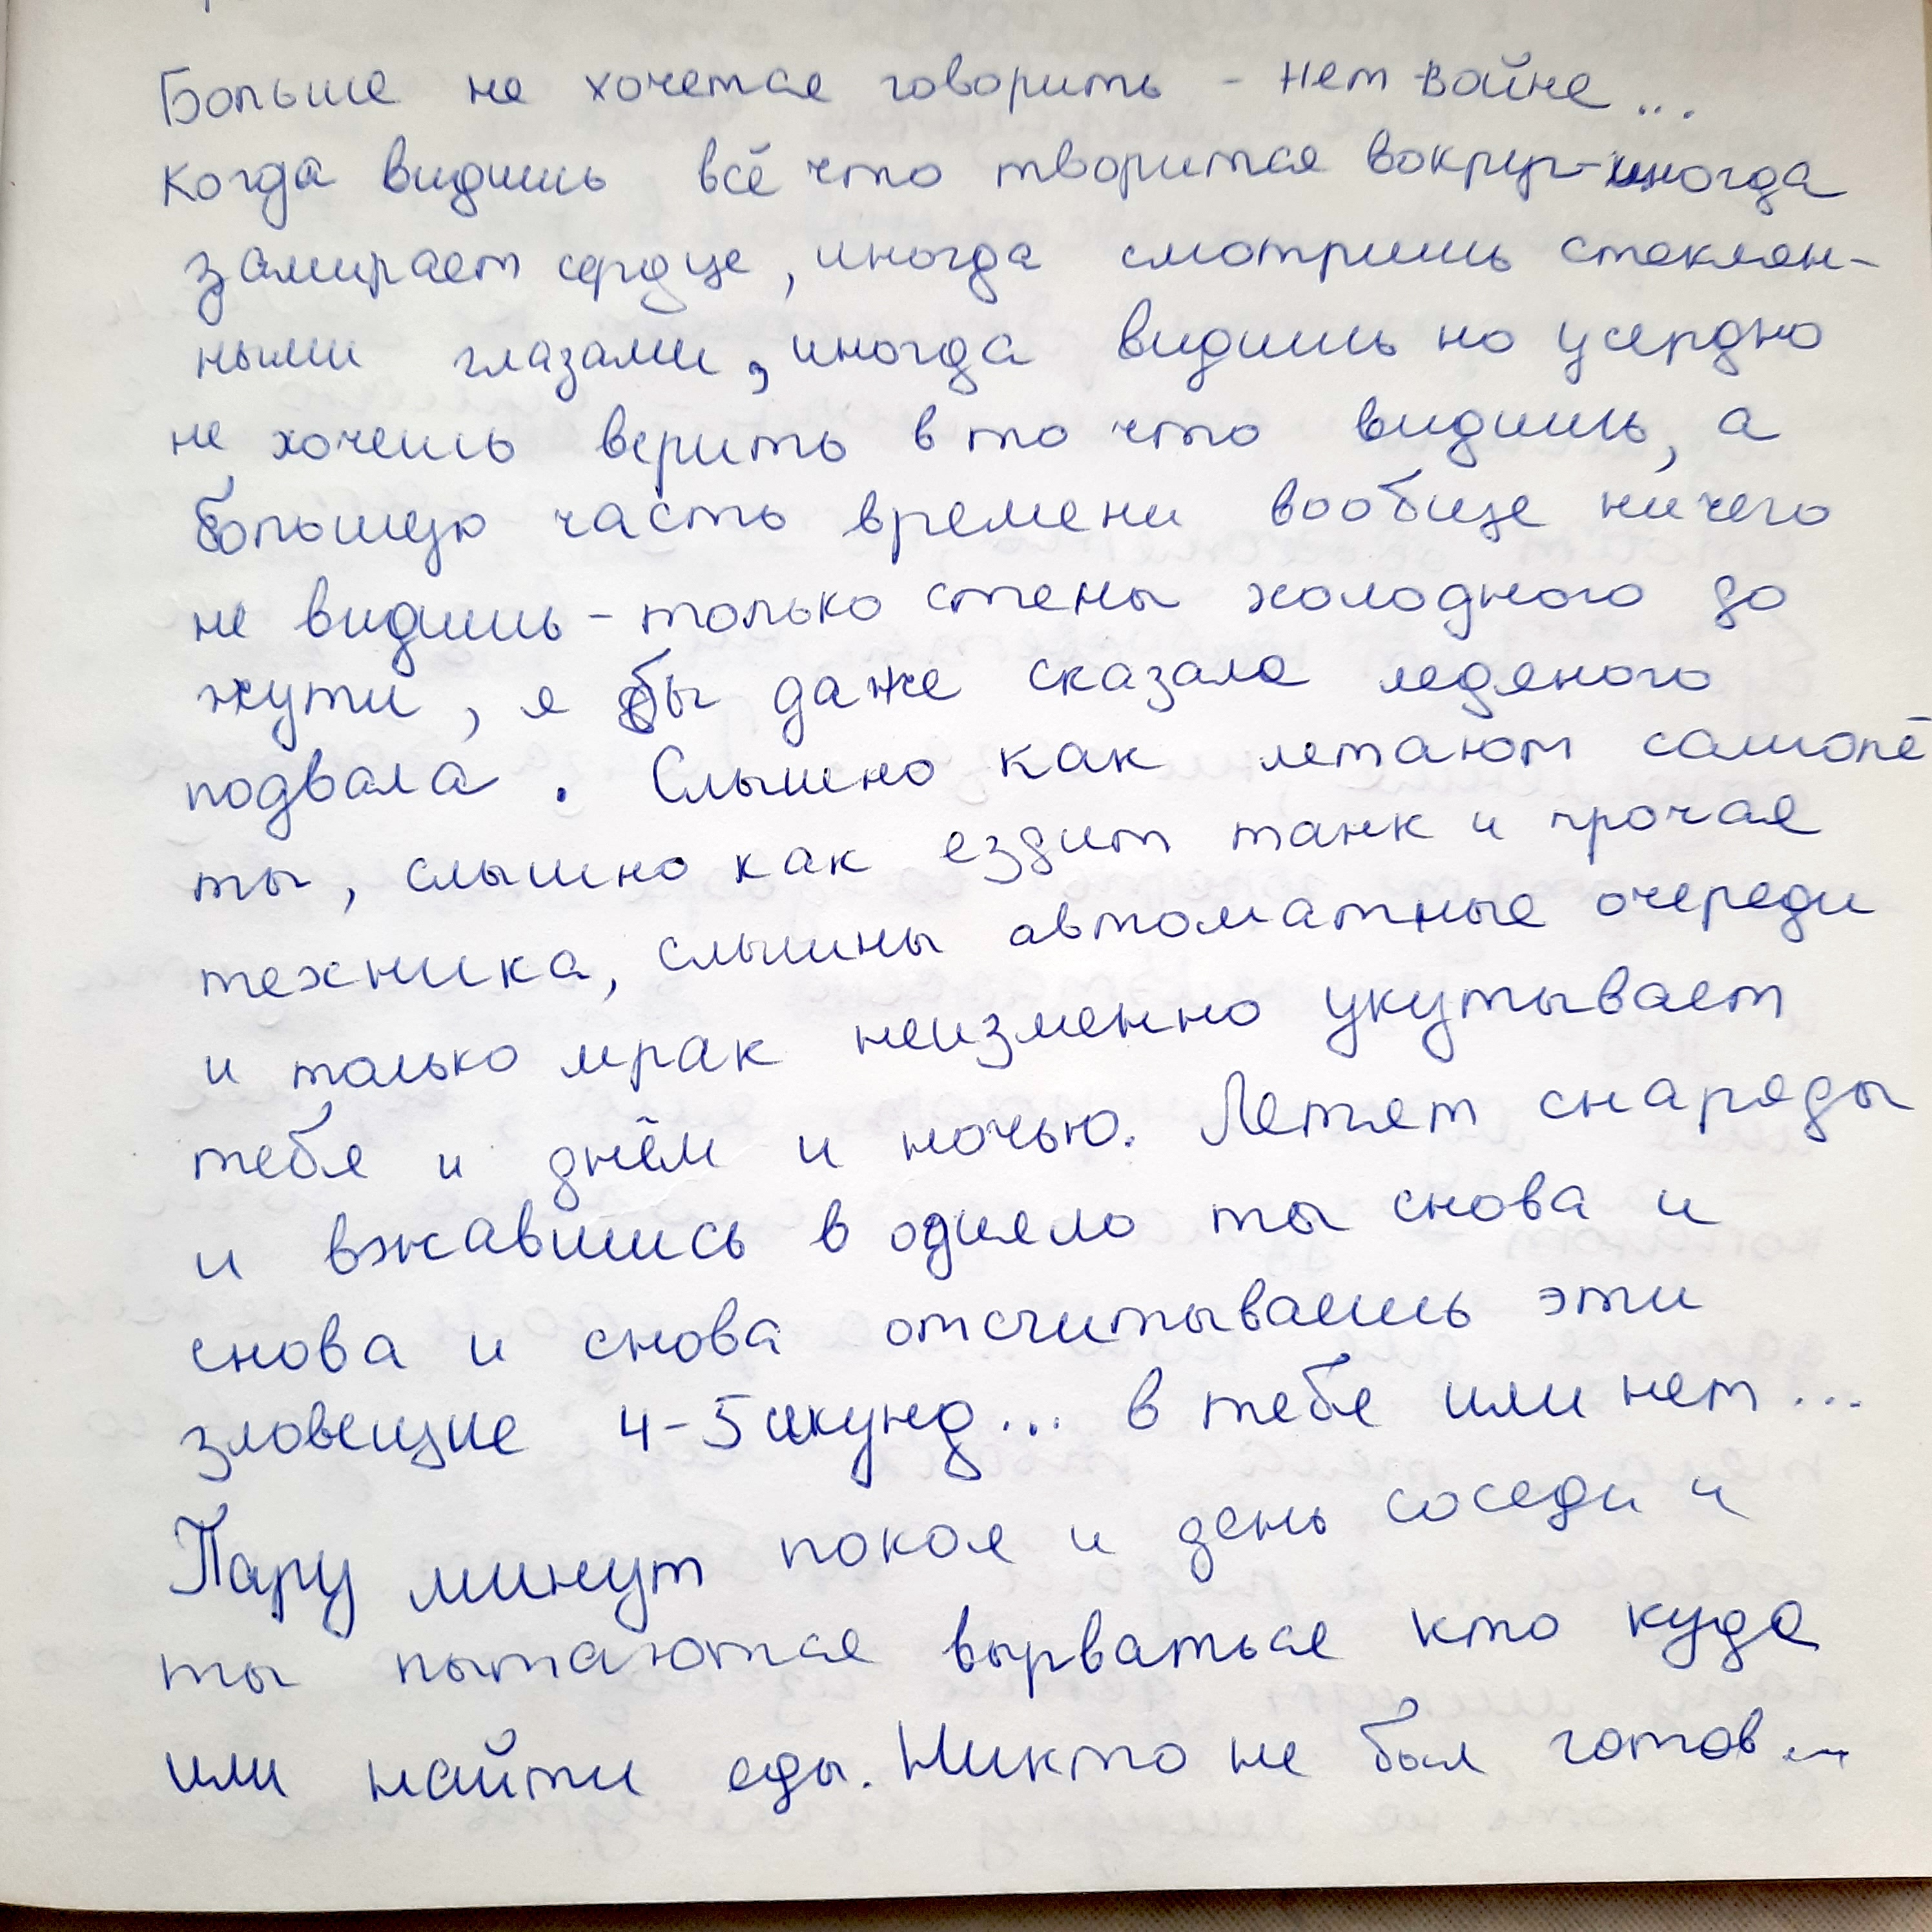 Больше не хочется говорить - нет войне...
когда видишь всё что творится вокруг-иногда
замирает сердце, иногда смотришь стеклян-
ными глазами, иногда видишь но усердно
не хочешь верить в то что видишь, а
большую часть времени вообще ничего
не видишь - только стены холодного до
жути, я бы даже сказала ледяного
подвала. Слышно как летают самолё
ты, слышно как ездит танк и прочая
техника, слышны автоматные очереди
и только мрак неизменно укутывает
тебя и днём и ночью. Летят снаряды
и вжавшись в одияло ты снова и
снова и снова отсчитываешь эти
зловещие 4-5 секунд... в тебя или нет...
Пару минут покоя и день соседи и
ты пытаются вырваться кто куда
или найти еды. Никто не был готов...